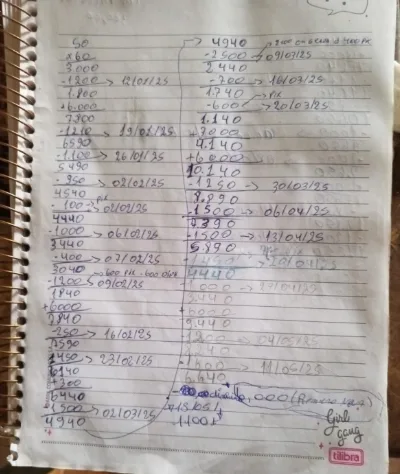 50
x60
3.000
-1200 → 12/01/25
1.800
+6.000
7800
-1210 → 19/01/25
6590
-1.100 → 26/01/25
5490
- 950 → 02/02/25
4540
- 100 → PIX 02/02/25
4440
-1000 → 06/02/25
3440
-400 → 07/02/25
3040
-1200 → 09/02/25
1840
+6000
7840
-250 → 16/02/25
7590
1450 → 23/02/25
6140
+300
6440
1500 → 02/03/25
4940
4940
-2500 → 09/03/25
2.440
-700 → 16/03/25
1.740
-600 → PIX 20/03/25
1.140
+3000
4.140
+6.000
10.140
-1250 → 30/03/25
8.890
-1500 → 06/04/25
7390
-1500 → 13/04/25
5890
-1450 → 20/04/25
4440
1000 →
3440
+6000
9440
→ 04/05/25
→ 11/05/25
6640
Girl
gang
tilibra